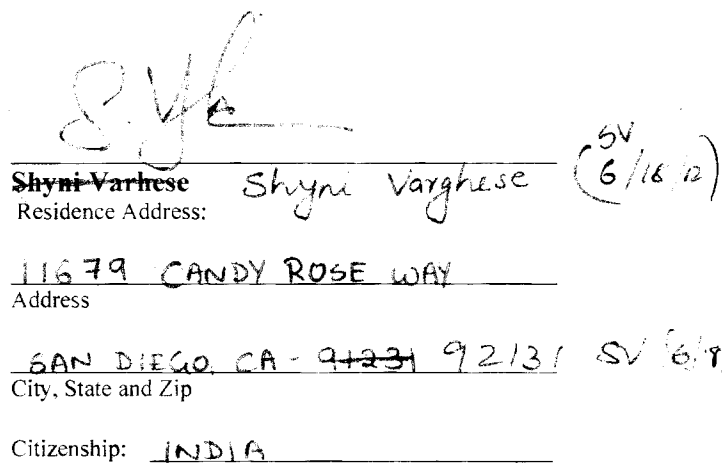 S. V
SV
Shyni Varhese Shyni Varghese (6/18/12)
Residence Address:
11679 CANDY ROSE WAY
Address
SAN DIEGO, CA - 91231 92131 SV 6/8
City, State and Zip
Citizenship: INDIA